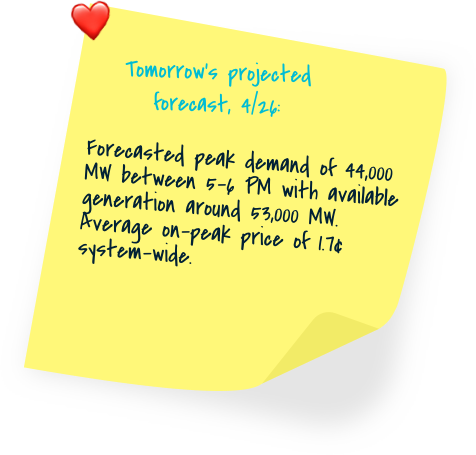 Tomorrow's projected
forecast, 4/26:
Forecasted peak demand of 44,000
MW between 5-6 PM with available
generation around 53,000 MW.
Average on-peak price of 1.7¢
system-wide.